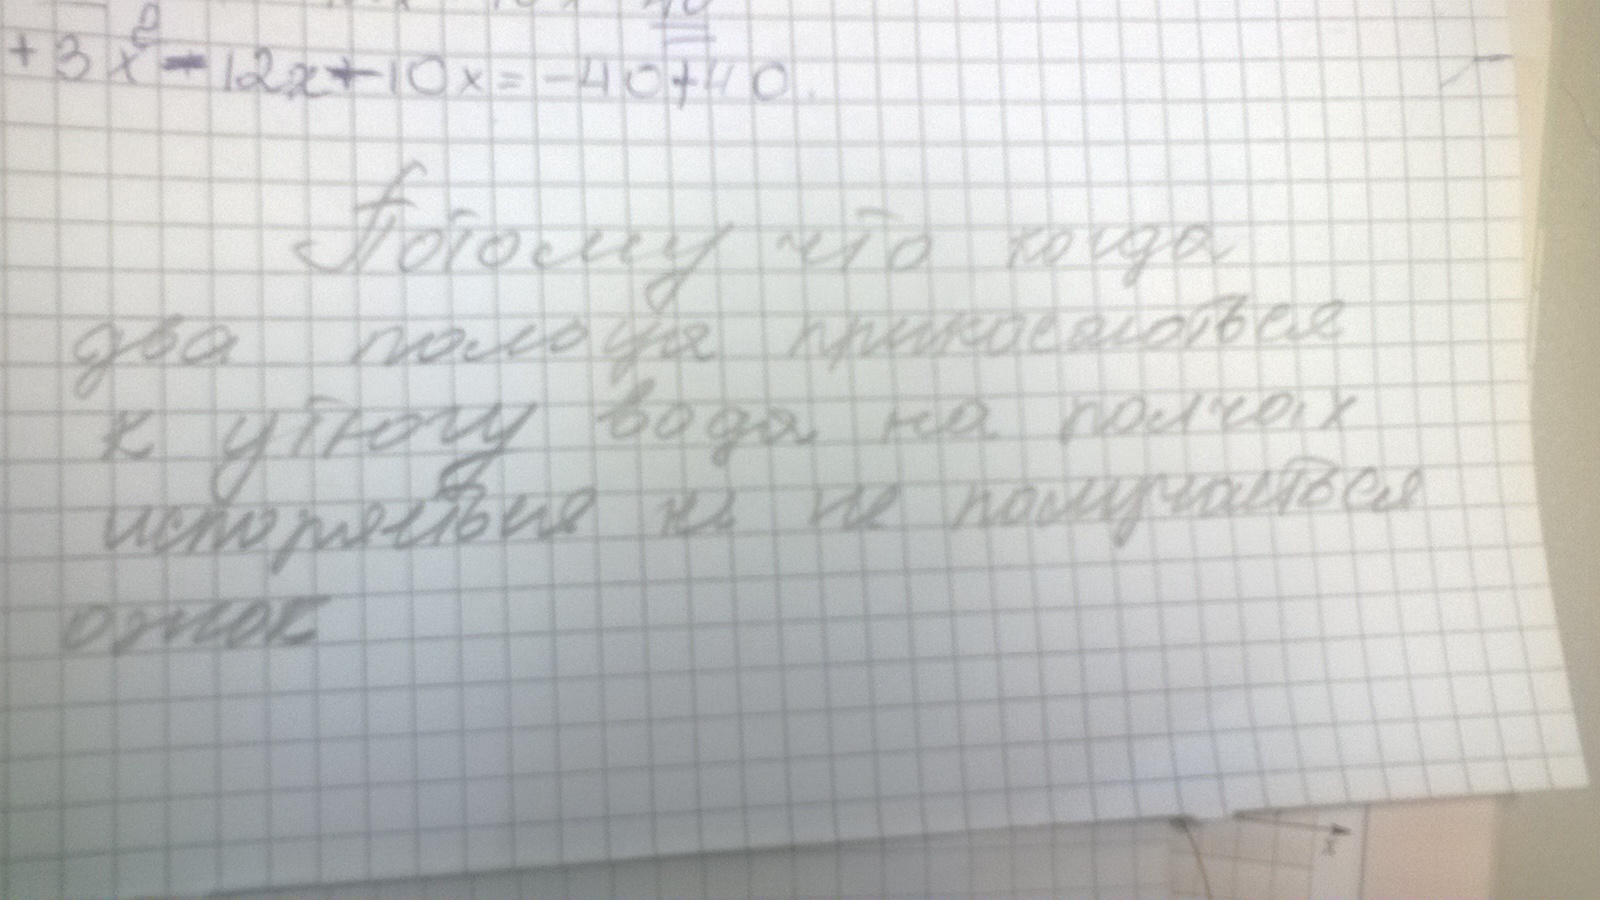 + 3x² - 12x + 10x = -40 + 40.
Потому что когда
два пальца прикосаються
к утюгу вода на палчах
испоряеться и не получаеться
ожог
x